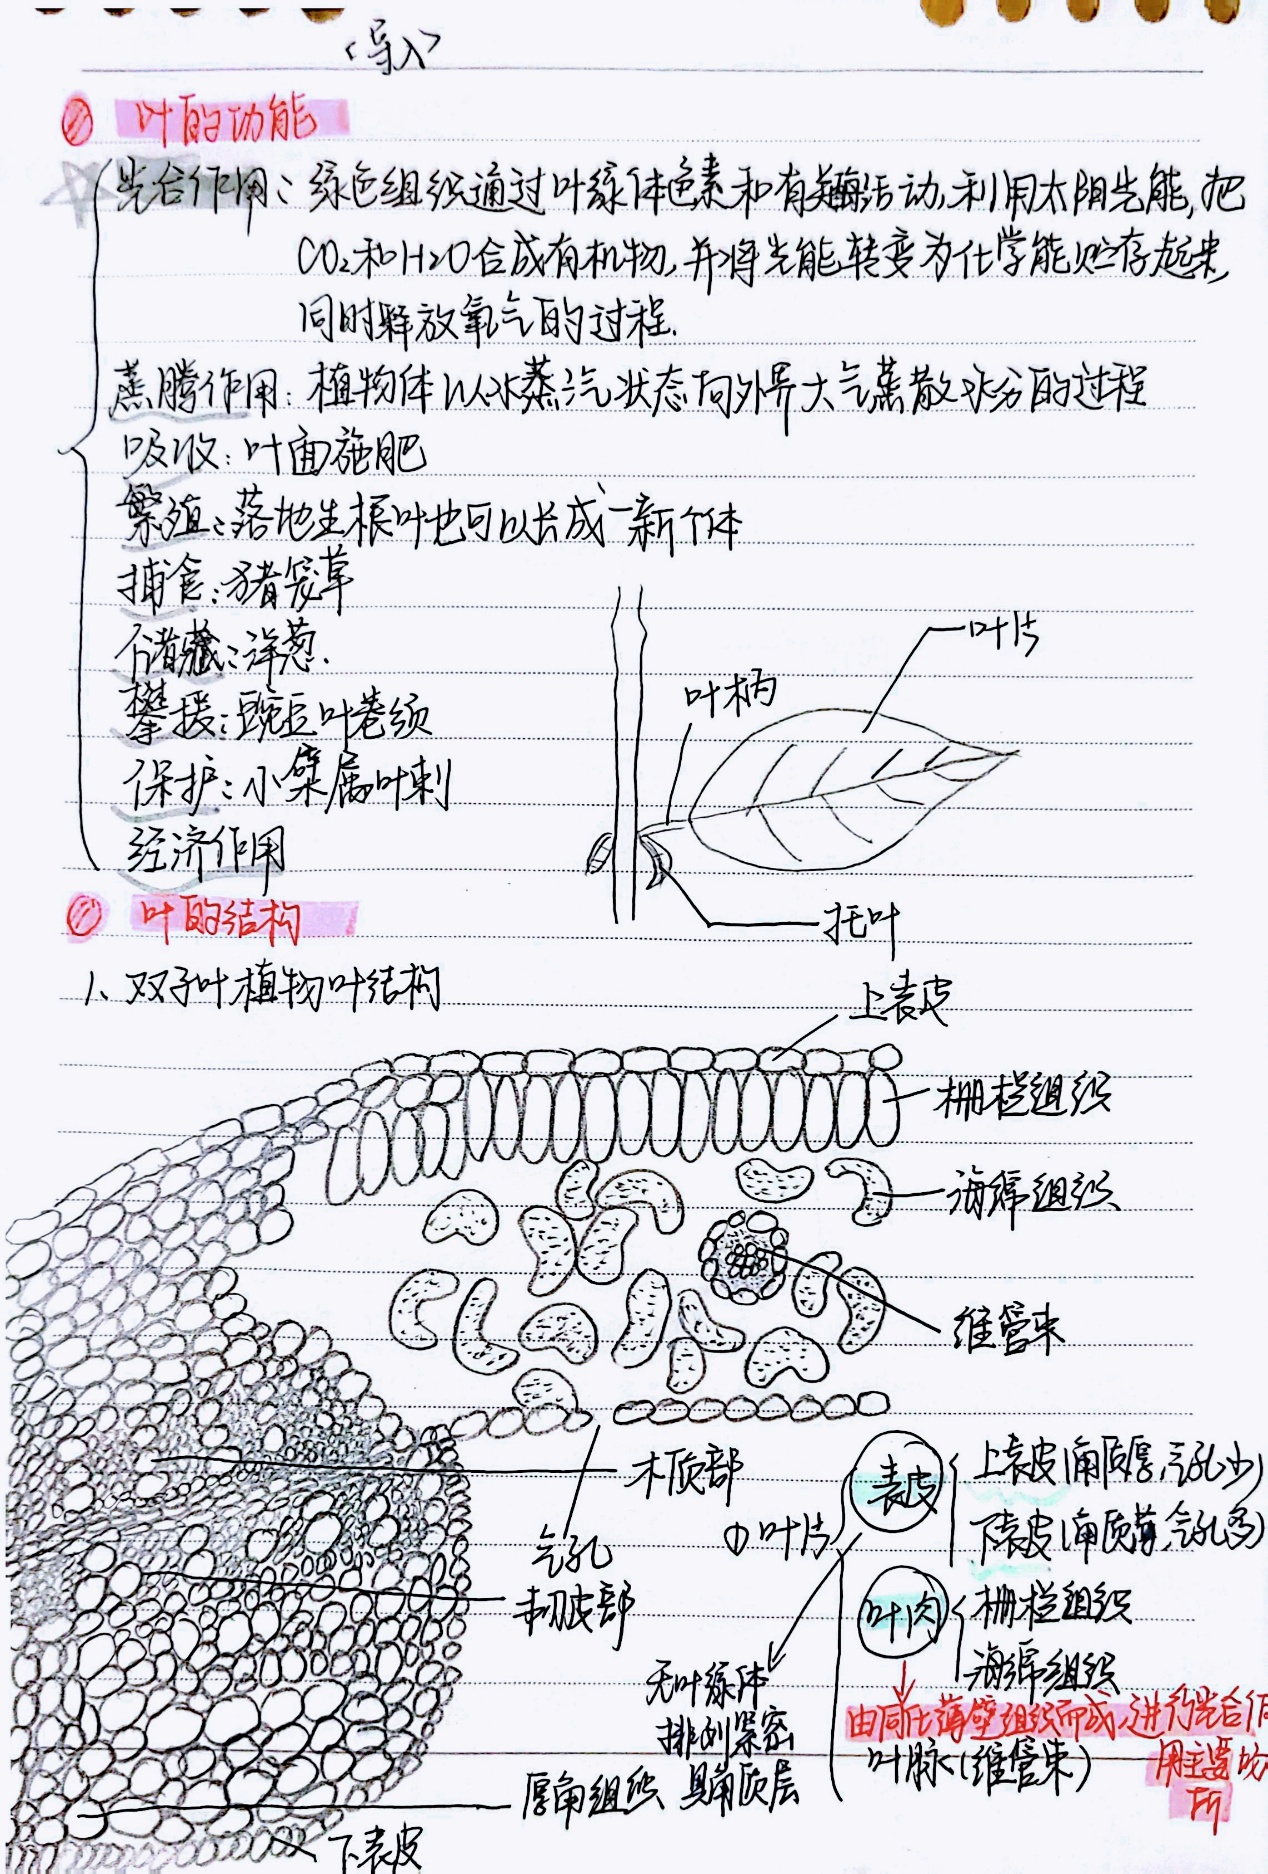 <导入>
叶的功能
光合作用：绿色组织通过叶绿体色素和有关酶活动,利用太阳光能,把
CO₂和H₂O合成有机物,并将光能转变为化学能贮存起来,
同时释放氧气的过程.
蒸腾作用：植物体以水蒸汽状态向外界大气蒸散水分的过程
吸收：叶面施肥
繁殖：落地生根叶也可以长成一新个体
捕食：猪笼草
储藏：洋葱.
攀援：豌豆叶卷须
保护：小檗属叶刺
经济作用
叶片
叶柄
托叶
叶的结构
1、双子叶植物叶结构
上表皮
栅栏组织
海绵组织
维管束
木质部
气孔
韧皮部
厚角组织
下表皮
①叶片
表皮
上表皮(角质厚,气孔少)
下表皮(角质薄,气孔多)
叶肉
栅栏组织
海绵组织
由同化薄壁组织而成,进行光合作
用主要场
所
叶脉(维管束)
无叶绿体
排列紧密
具角质层